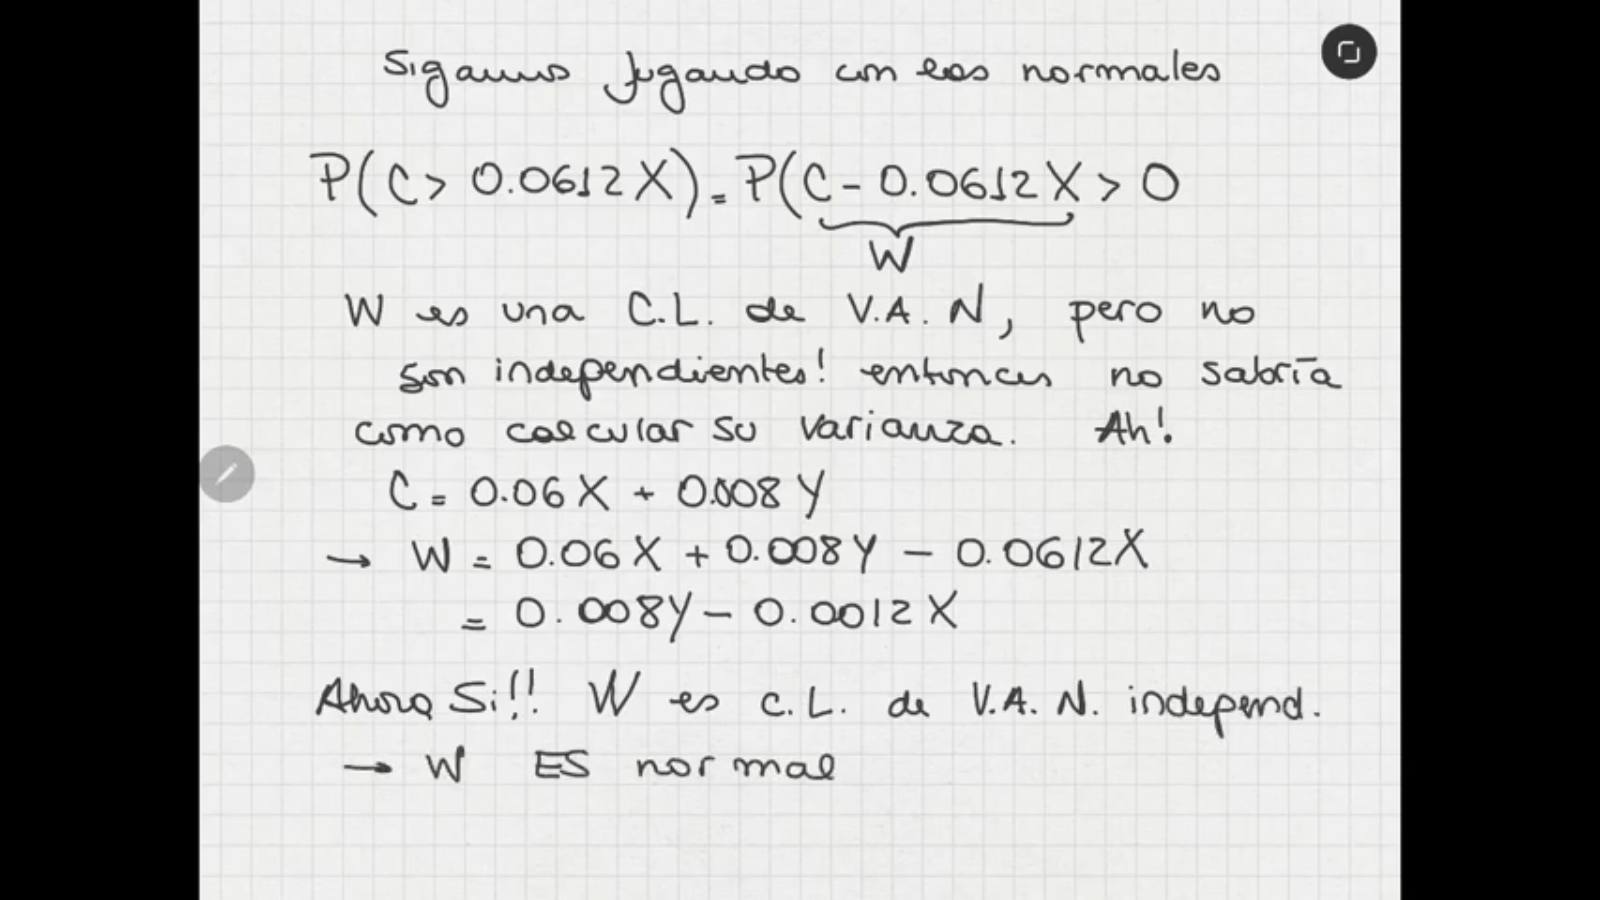 Sigamos jugando con las normales
P(C > 0.0612X) = P(C - 0.0612X > 0
W
W es una C.L. de V.A. N, pero no
son independientes! entonces no sabría
como calcular su varianza. Ah!
C = 0.06X + 0.008Y
→ W = 0.06X + 0.008Y - 0.0612X
= 0.008Y - 0.0012X
Ahora Si!! W es C.L. de V.A.N. independ.
→ W ES normal